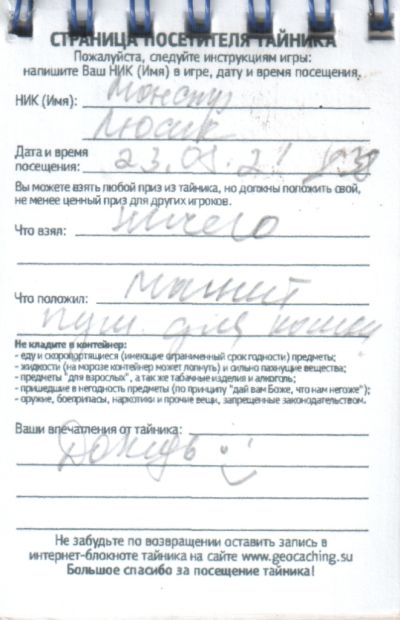 СТРАНИЦА ПОСЕТИТЕЛЯ ТАЙНИКА
Пожалуйста, следуйте инструкциям игры:
напишите Ваш НИК (Имя) в игре, дату и время посещения,
НИК (Имя): Монстр
Люсик
Дата и время
посещения: 23.05.21
Вы можете взять любой приз из тайника, но должны положить свой,
не менее ценный приз для других игроков.
Что взял: ничего
Что положил: магнит
для кошки
Не кладите в контейнер:
- еду и скоропортящиеся (имеющие ограниченный срок годности) предметы;
- жидкости (на морозе контейнер может лопнуть) и сильно пахнущие вещества;
- предметы "для взрослых", а так же табачные изделия и алкоголь;
- пришедшие в негодность предметы (по принципу "дай вам Боже, что нам негоже");
- оружие, боеприпасы, наркотики и прочие вещи, запрещенные законодательством.
Ваши впечатления от тайника:
Дождь :-)
Не забудьте по возвращении оставить запись в
интернет-блокноте тайника на сайте www.geocaching.su
Большое спасибо за посещение тайника!